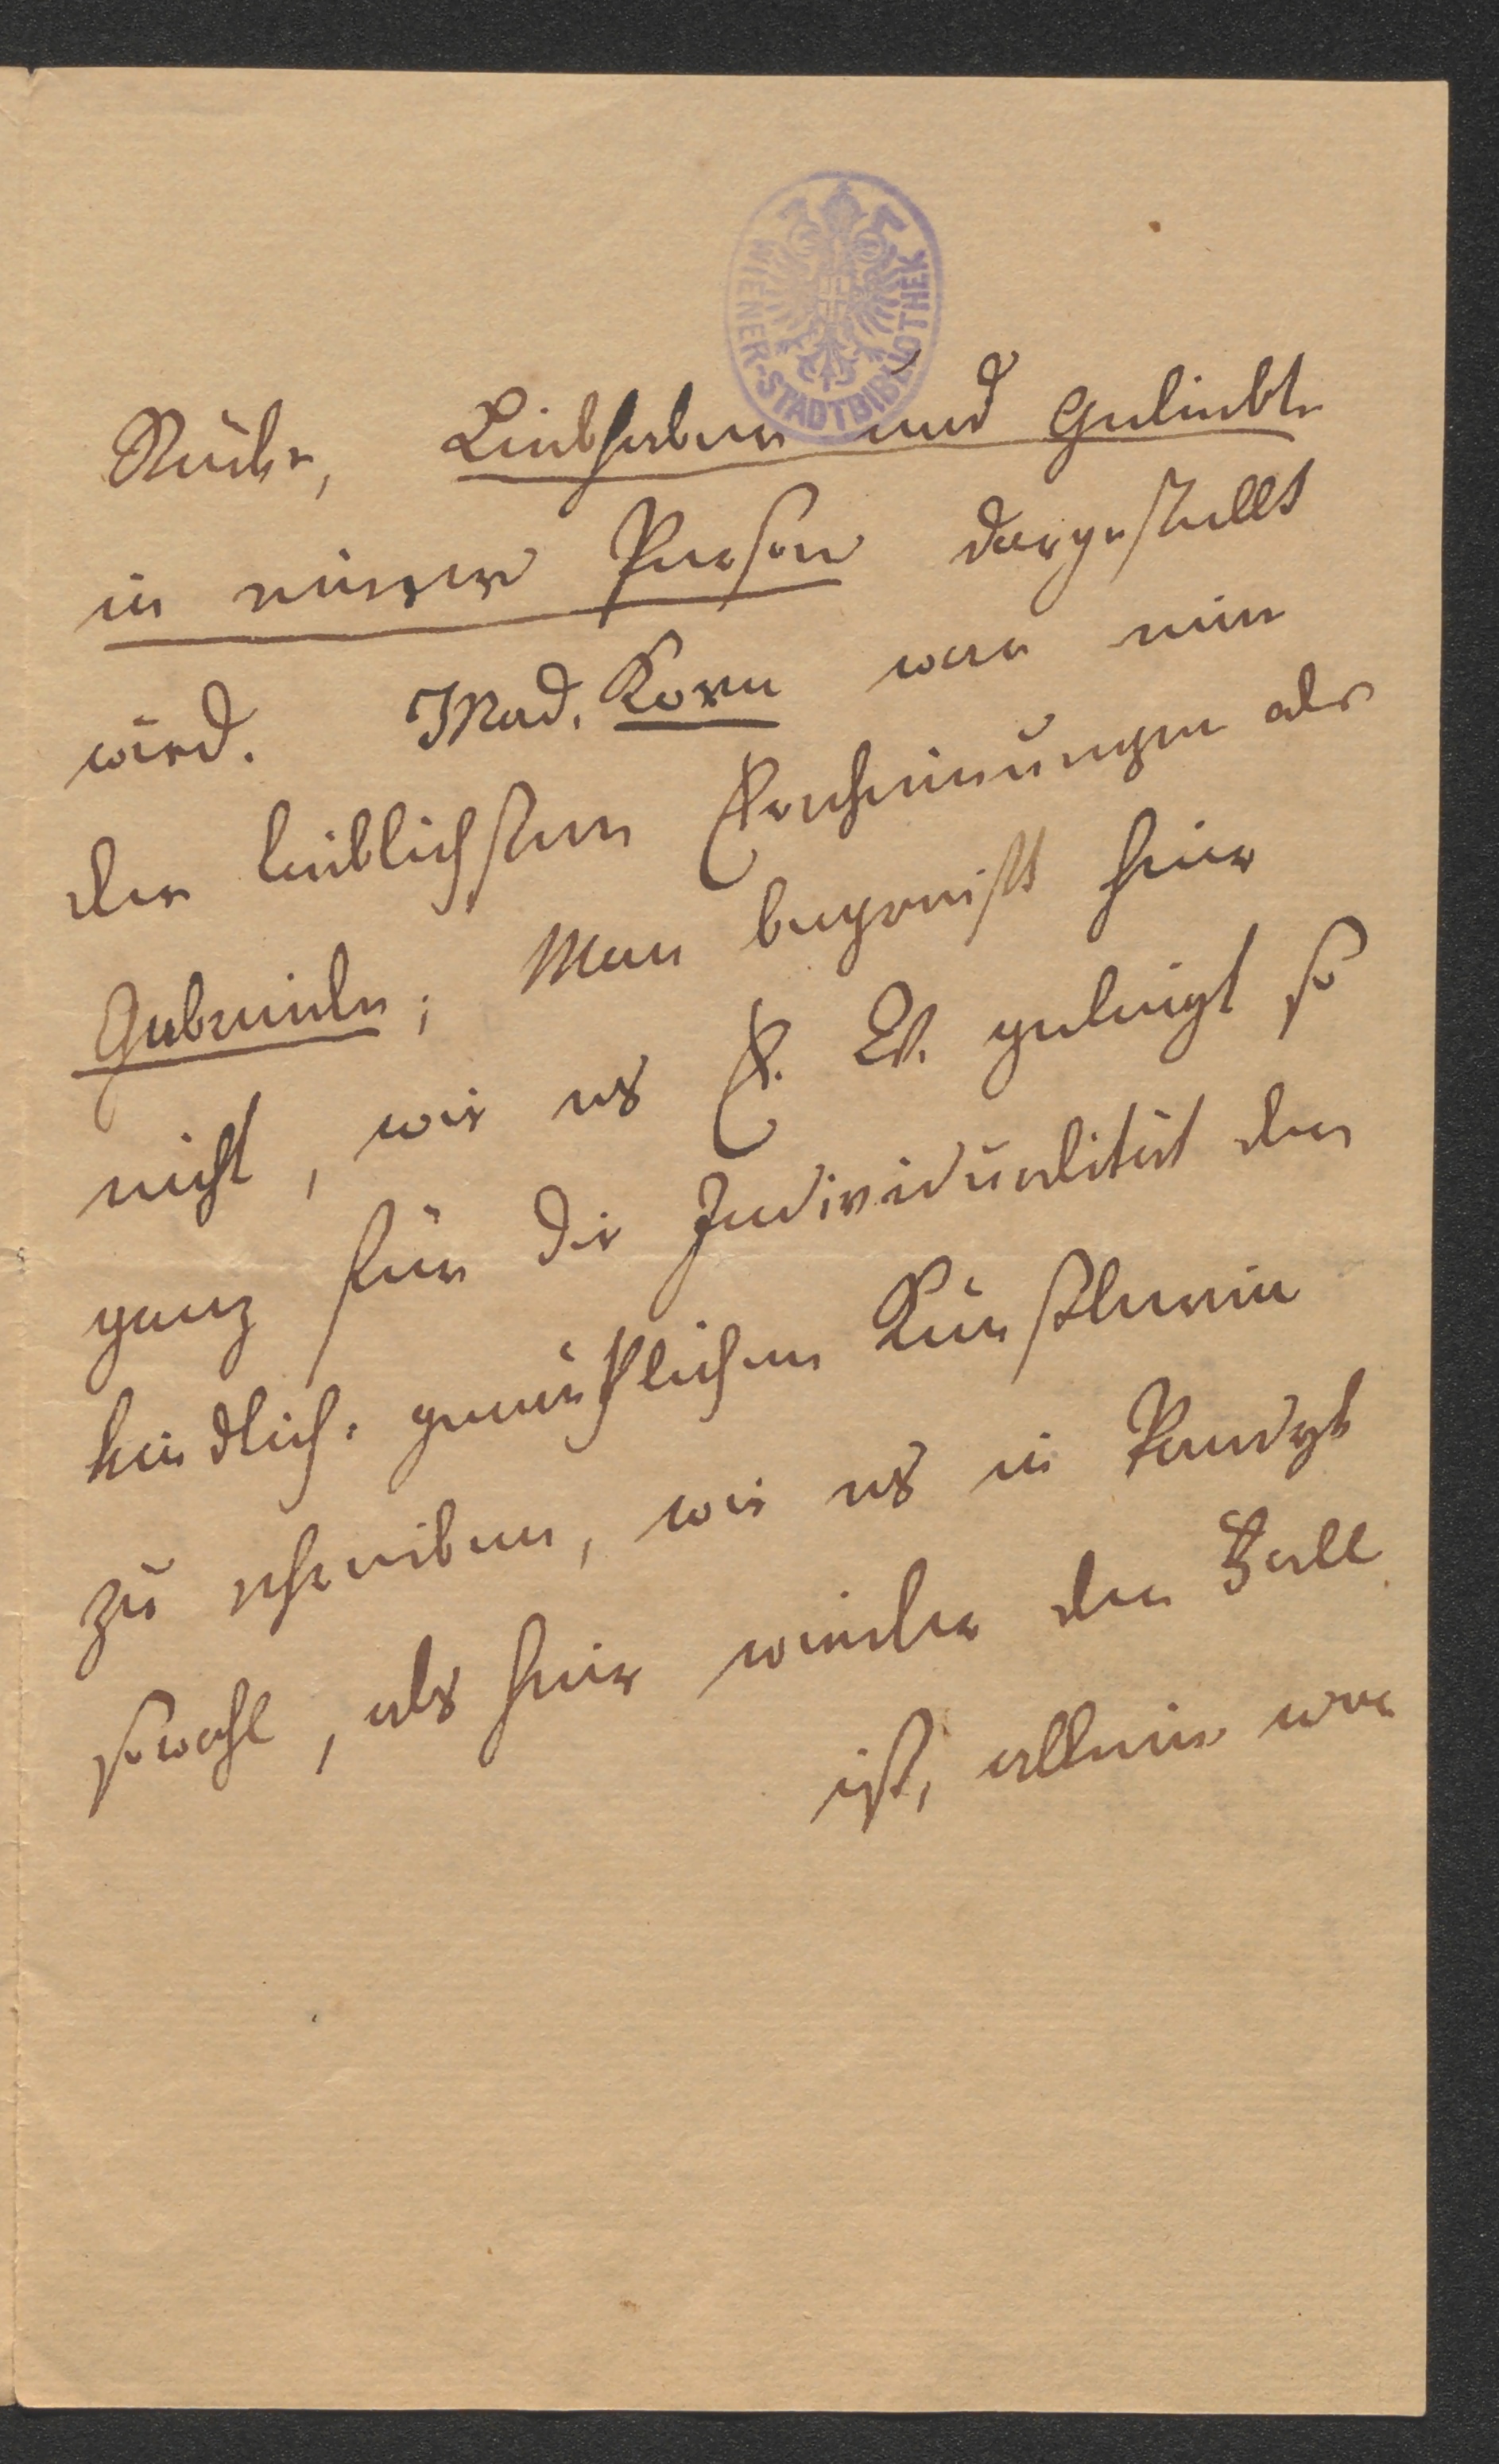 WIENER-STADTBIBLIOTHEK
Stücke, Liebhaber und Geliebte
in einer Person dargestellt
wird. Mad. Korn war eine
der lieblichsten Erscheinungen als
Gabriele; Man begreift hier
nicht, wie es E. W. gelingt so
ganz für die Individualität der
kindlich-gemüthlichen Künstlerin
zu schreiben, wie es in
sowohl, als hier wieder der Fall
ist, allein wer